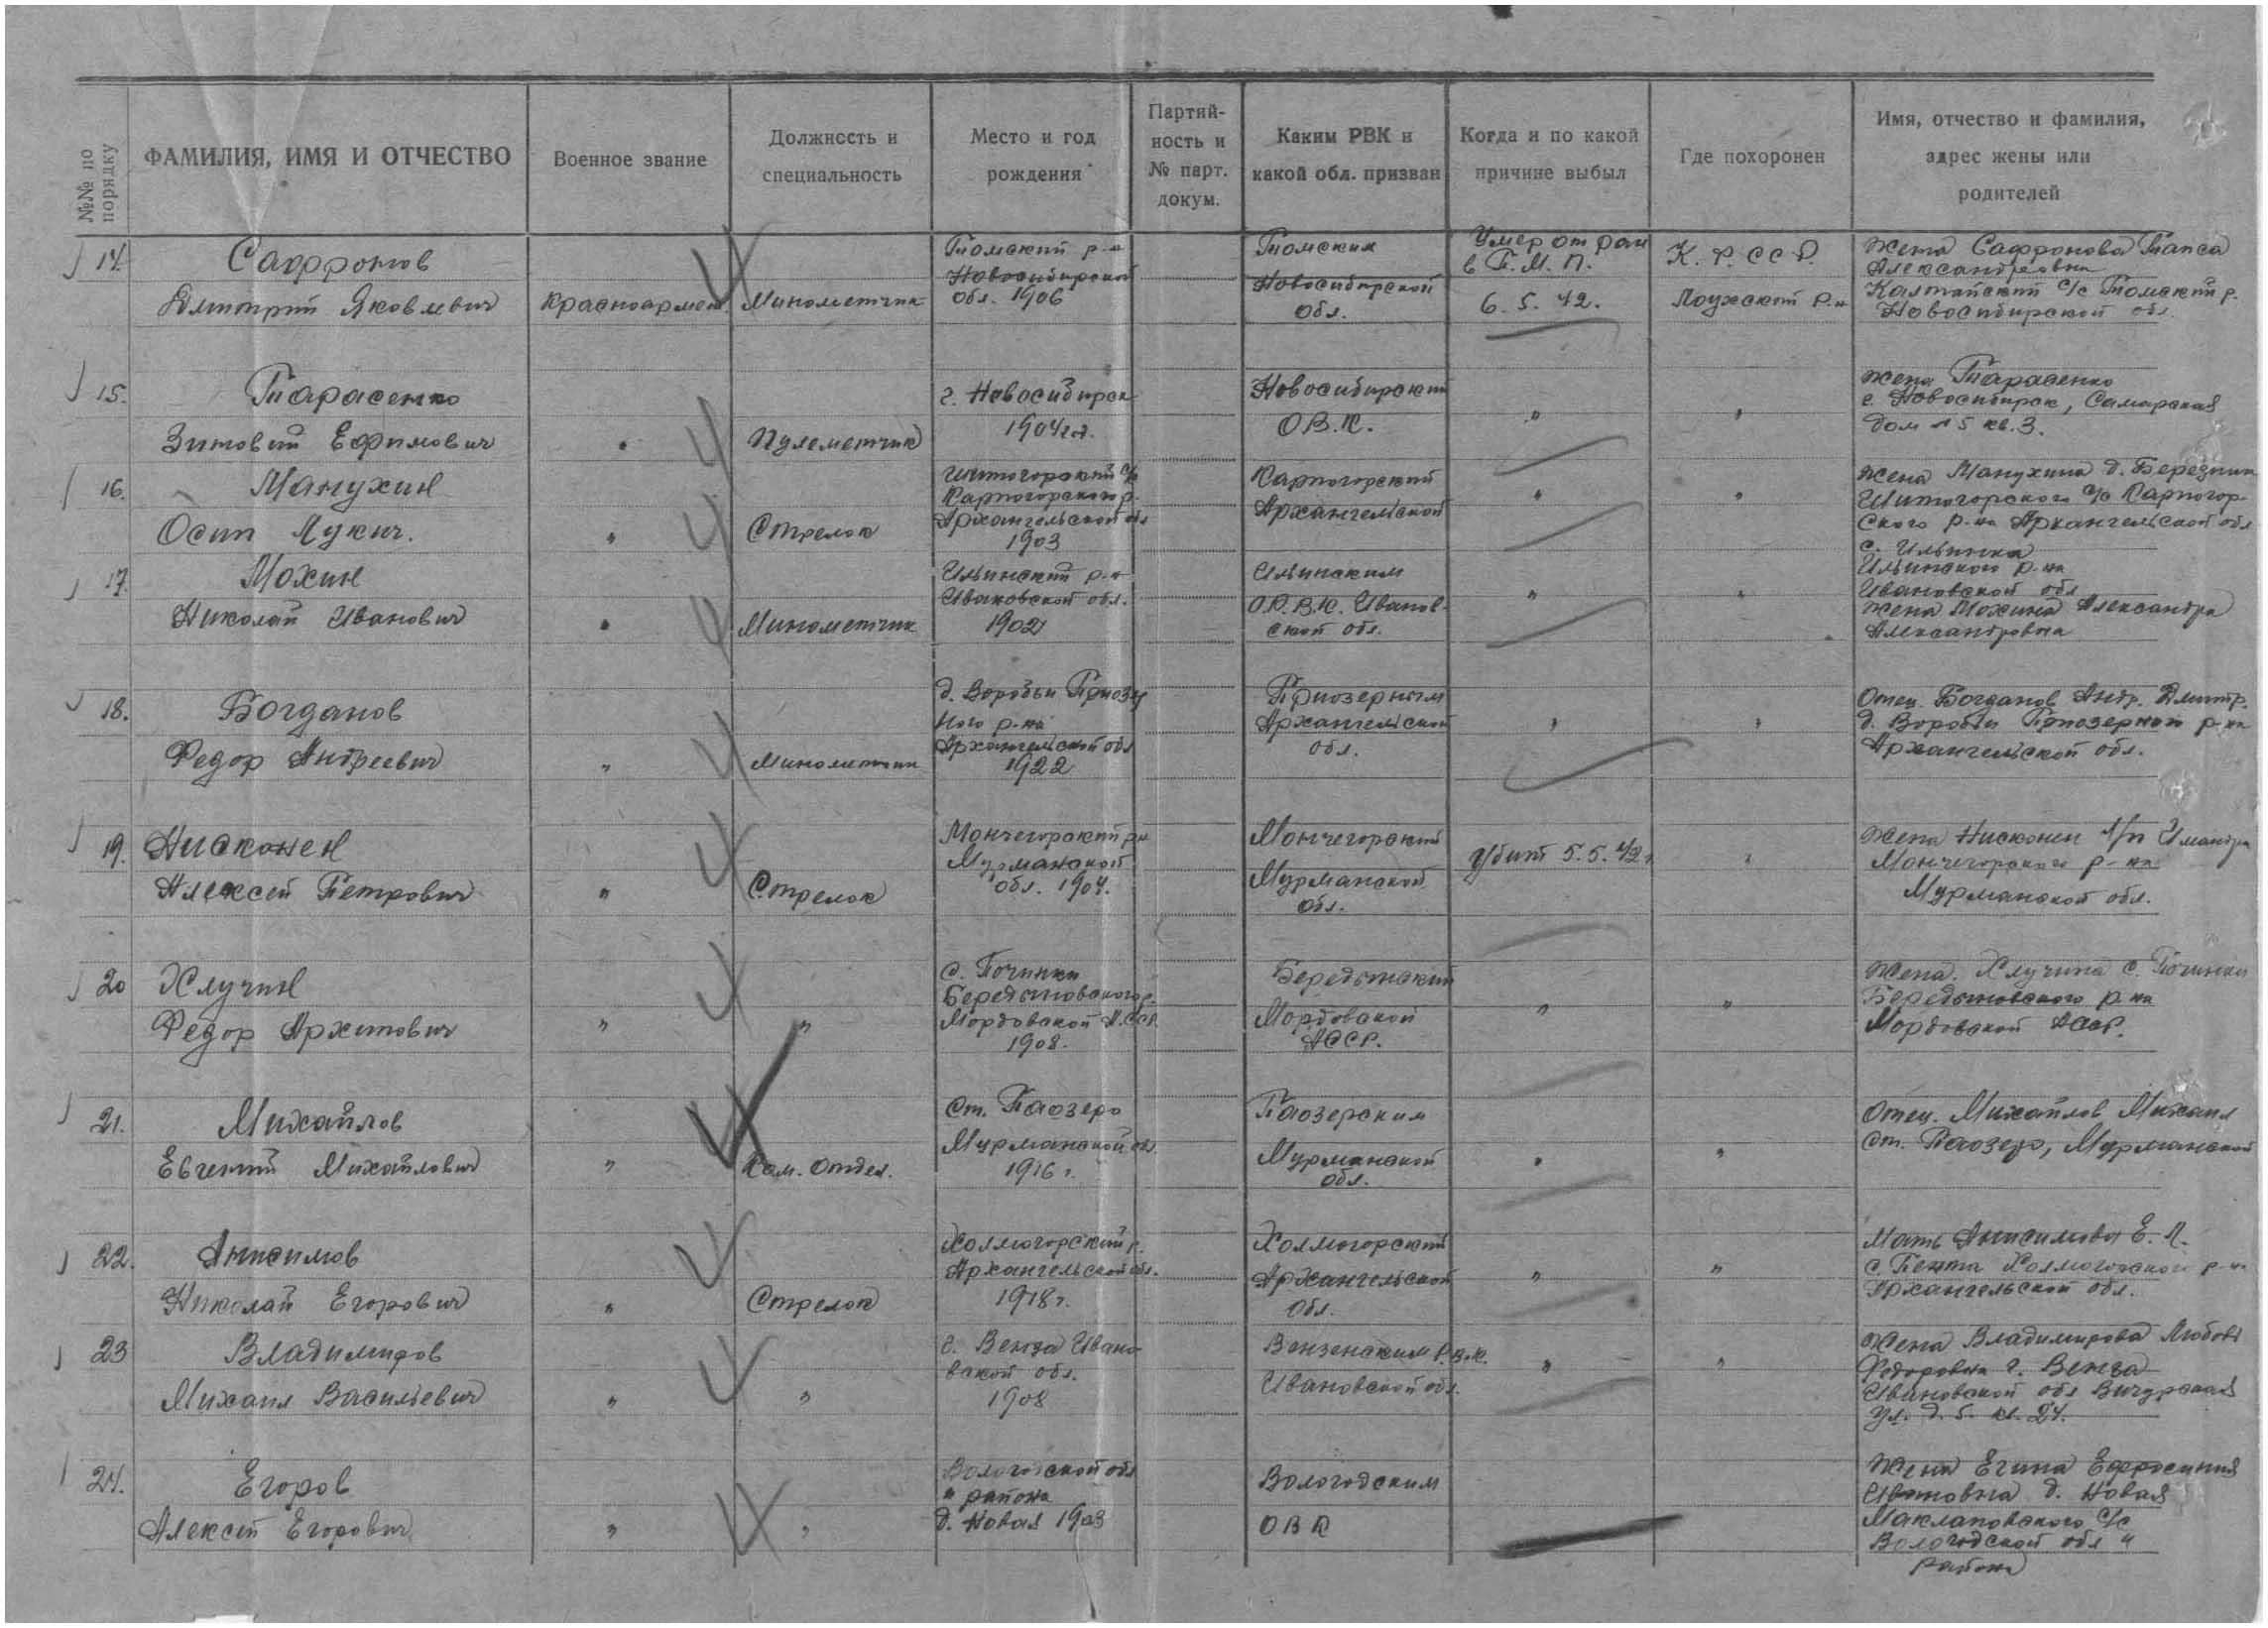 №№ по порядку
ФАМИЛИЯ, ИМЯ И ОТЧЕСТВО
Военное звание
Должность и
специальность
Место и год
рождения
Партий-
ность и
№ парт.
докум.
Каким РВК и
какой обл. призван
Когда и по какой
причине выбыл
Где похоронен
Имя, отчество и фамилия,
адрес жены или
родителей
14.
Сафронов
Дмитрий Яковлевич
Красноармеец
Минометчик
Томский р-н
Новосибирской
обл. 1906
Томским
Новосибирской
обл.
Умер от ран
в П.М.П.
6.5.42.
К.Ф.ССР.
Лоухский р-н
Жена Сафронова
Александровна
Калтайский с/с Томский р.
Новосибирской обл.
15.
Тарасенко
Зиновий Ефимович
"
Пулеметчик
г. Новосибирск
1904 г.
Новосибирским
О.В.К.
"
"
Жена Тарасенко
г. Новосибирск, Самарская
дом № 5 кв. 3.
16.
Манухин
Осип Лукич.
"
Стрелок
Карпогорского р.
Архангельской обл
1903
Карпогорский
Архангельской
"
"
Жена Манухина д. Березник
с/с Карпогор-
ского р-на Архангельской обл
17.
Мохин
Николай Иванович
"
Минометчик
Ильинский р-н
Ивановской обл.
1902
Ильинским
О.Р.В.К. Иванов-
ской обл.
"
"
с. Ильинка
Ильинского р-на
Ивановской обл
Жена Мохина Александра
Александровна
18.
Богданов
Федор Андреевич
"
Минометчик
д. Воробьи Приозер
ного р-на
Архангельской обл
1922
Приозерным
Архангельской
обл.
"
"
Отец Богданов Андр. Дмитр.
д. Воробьи Приозерного р-на
Архангельской обл.
19.
Нисконен
Алексей Петрович
"
Стрелок
Мончегорский р-н
Мурманской
обл. 1904.
Мончегорский
Мурманской
обл.
Убит 5.5.42 г.
"
Жена Нисконен Имандра
Мончегорского р-на
Мурманской обл.
20
Хлучин
Федор Архипович
"
"
с. Починки
Мордовской А.ССР
1908.
Мордовской
АССР.
"
"
Жена. Хлучина с. Починки
р-на
Мордовской АССР.
21.
Михайлов
Евгений Михайлович
"
Ком. отдел.
ст. Паозеро
Мурманской обл.
1916 г.
Паозерским
Мурманской
обл.
"
"
Отец. Михайлов Михаил
ст. Паозеро, Мурманской
22.
Анисимов
Николай Егорович
"
Стрелок
Холмогорский р.
Архангельской обл.
1918 г.
Холмогорский
Архангельской
обл.
"
"
Мать Анисимова Е.
Холмогорского р-на
Архангельской обл.
23
Владимиров
Михаил Васильевич
"
"
г. Венза Ивано-
вской обл.
1908
Вензенским Р.В.К.
Ивановской обл.
"
"
Жена Владимирова Любовь
Федоровна г. Венза
Ивановской обл Вичугская
ул. д. 5. кв. 24.
24.
Егоров
Алексей Егорович
"
"
Вологодской обл
" района
д. Новая 1903
Вологодским
ОВК
Жена Егина Ефросиния
Ивановна д. Новая
Маклаковского с/с
Вологодской обл "
района